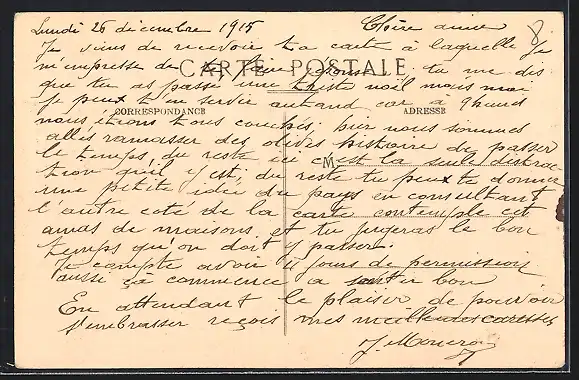 Lundi 26 décembre 1915 Chère amie 8
Je viens de recevoir ta carte à laquelle je
m'empresse de te faire réponse tu me dis
CARTE POSTALE
que tu as passé une triste noël nous moi
je peux t'en servir autand car a 9heures
CORRESPONDANCE ADRESSE
nous étions tous couchés. hier nous sommes
allés ramasser des olives histoire de passer
M
le temps, du reste ici c'est la seule distrac
tion qu'il y est; du reste tu peux te donner
une petite idée du pays en consultant
l'autre coté de la carte contemple cet
amas de maisons et tu jugeras le bon
temps qu'on doit y passer.
Je compte avoir jours de permission
aussi ça commence a sentir bon
En attendant le plaisir de pouvoir
t'embrasser reçois mes meilleures caresses